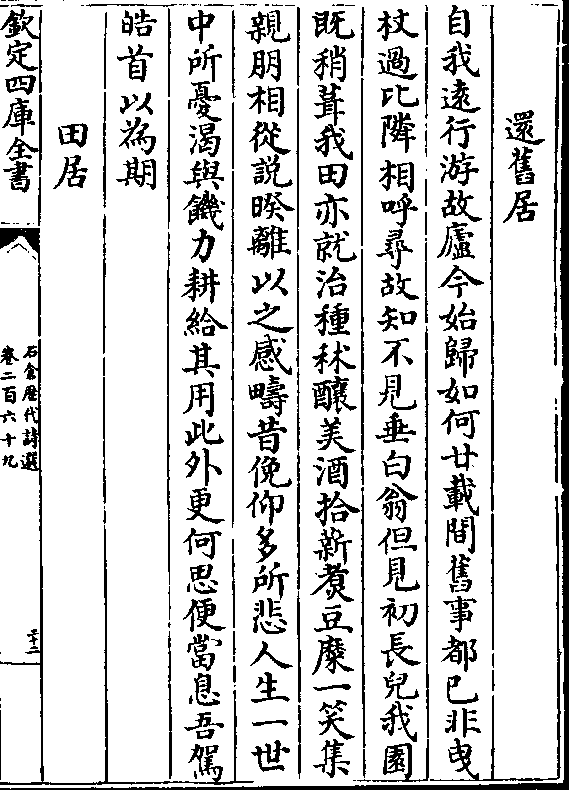 還舊居
自我遠行游故廬今始歸如何廿載間舊事都已非曵
杖過比隣相呼尋故知不見垂白翁但見初長兒我園
既稍葺我田亦就治種秫釀美酒拾薪煑豆糜一笑集
親朋相從說暌離以之感疇昔俛仰多所悲人生一世
中所憂渴與饑力耕給其用此外更何思便當息吾駕
皓首以為期
田居
欽定四庫全書
石倉歴代詩選
卷二百六十九